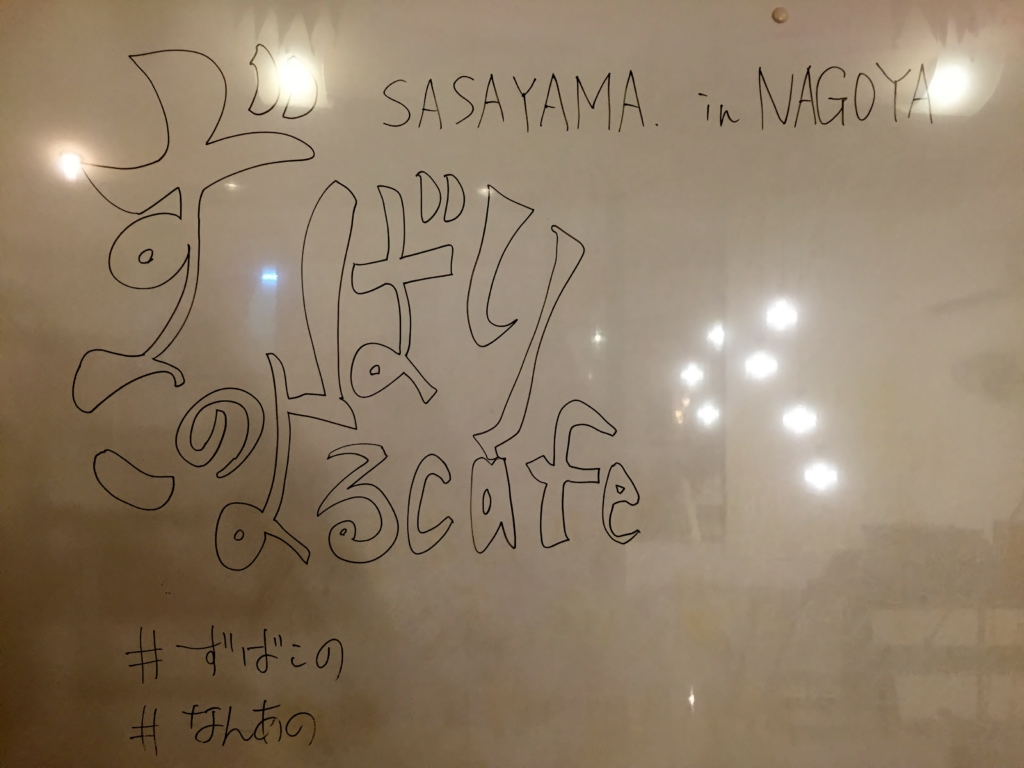 SASAYAMA. in NAGOYA
ずばり
このよるcafe
#ずばこの
#なんあの